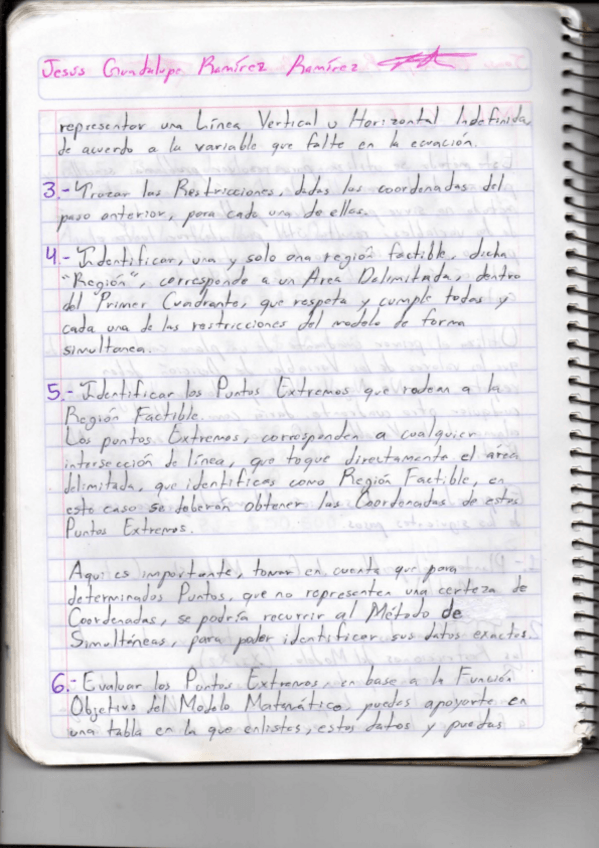 Jesús Guadalupe Ramírez Ramírez
representar una Línea Vertical u Horizontal Indefinida
de acuerdo a la variable que falte en la ecuación.
3.- Trazar las Restricciones, dadas las coordenadas del
paso anterior, para cada una de ellas.
4.- Identificar, una y solo una región factible, dicha
"Región", corresponde a un Area Delimitada, dentro
del Primer Cuadrante, que respeta y cumple todas y
cada una de las restricciones del modelo de forma
simultanea.
5.- Identificar los Puntos Extremos que rodean a la
Región Factible.
Los puntos Extremos, corresponden a cualquier
intersección de línea, que toque directamente el área
delimitada, que identificas como Región Factible, en
este caso se deberán obtener las Coordenadas de estos
Puntos Extremos.
Aqui es importante, tomar en cuenta que para
determinados Puntos, que no representen una certeza de
Coordenadas, se podría recurrir al Método de
Simultáneas, para poder identificar sus datos exactos.
6.- Evaluar los Puntos Extremos, en base a la Función
Objetivo del Modelo Matemático, puedes apoyarte en
una tabla en la que enlistes, estos datos y puedas